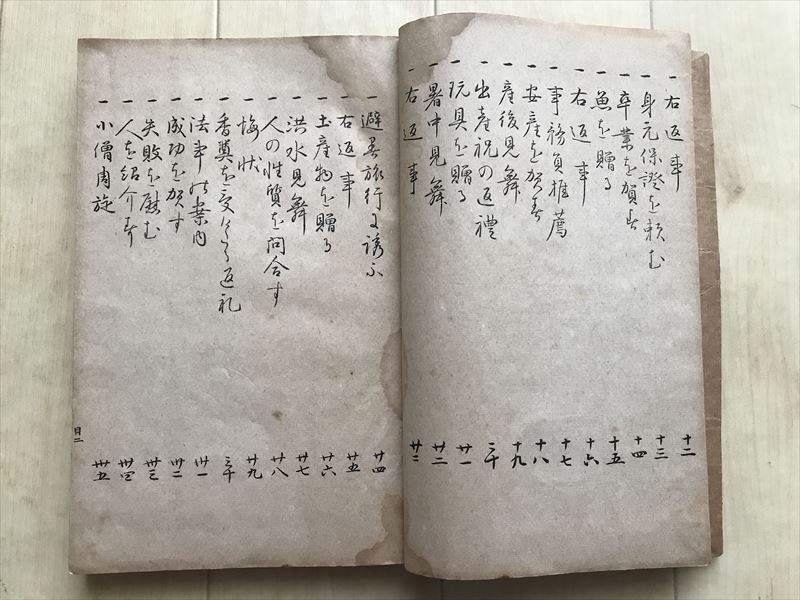 一 右返事 十二
一 身元保證を頼む 十三
一 卒業を賀す 十四
一 魚を贈る 十五
一 右返事 十六
一 事務員推薦 十七
一 安産を賀す 十八
一 産後見舞 十九
一 出産祝の返禮 二十
一 玩具を贈る 廿一
一 暑中見舞 廿二
一 右返事 廿三
一 避暑旅行に誘ふ 廿四
一 右返事 廿五
一 土産物を贈る 廿六
一 洪水見舞 廿七
一 人の性質を問合す 廿八
一 悔状 廿九
一 香奠を受ける返礼 三十
一 法事の案内 卅一
一 成功を賀す 卅二
一 失敗を慰む 卅三
一 人を紹介す 卅四
一 小僧周旋 卅五
目二